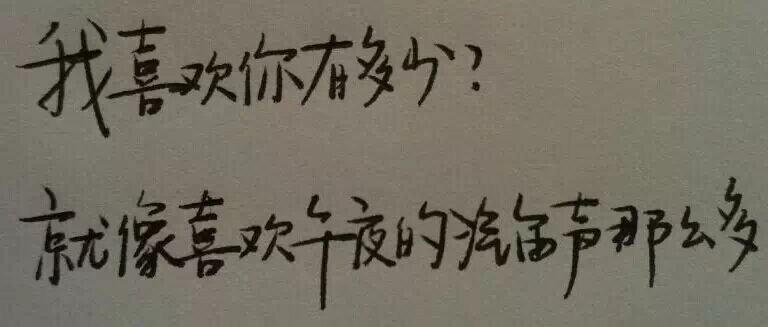 我喜欢你有多少?
就像喜欢午夜的汽笛声那么多